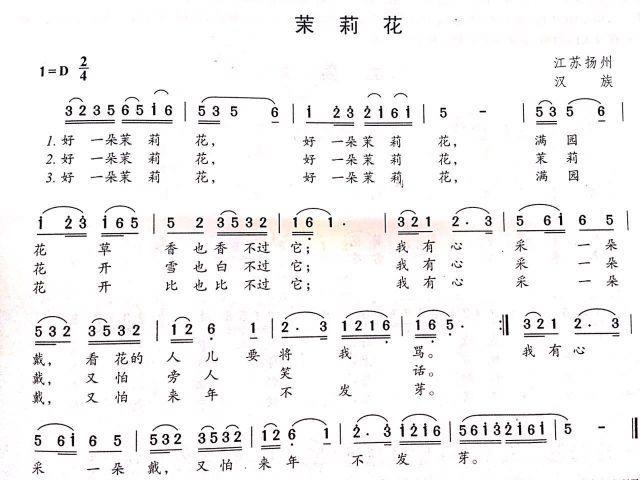 茉莉花
1=D 2/4
江苏扬州
汉 族
3235 6516 | 535 6 | 1 232161 | 5 - | 53 5 6
1. 好 一朵茉 莉 花， 好 一朵茉 莉 花， 满 园
2. 好 一朵茉 莉 花， 好 一朵茉 莉 花， 茉 莉
3. 好 一朵茉 莉 花， 好 一朵茉 莉 花， 满 园
1 23 165 | 5 2 3532 | 16 1 · | 321 2 · 3 | 5 61 65
花 草 香 也 香 不过 它； 我 有 心 采 一 朵
花 开 雪 也 白 不过 它； 我 有 心 采 一 朵
花 开 比 也 比 不过 它； 我 有 心 采 一 朵
532 3532 | 12 6 1 | 2 · 3 1216 | 16 · :‖ 321 2 · 3
戴， 看 花的 人 儿 要 将 我 骂。 我 有 心
戴， 又 怕 旁 人 笑 话。
戴， 又 怕 来 年 不 发 芽。
5 61 65 | 532 3532 | 12 6 1 | 2 · 3 1216 | 5613216 | 5 - ‖
采 一 朵 戴， 又 怕 来 年 不 发 芽。